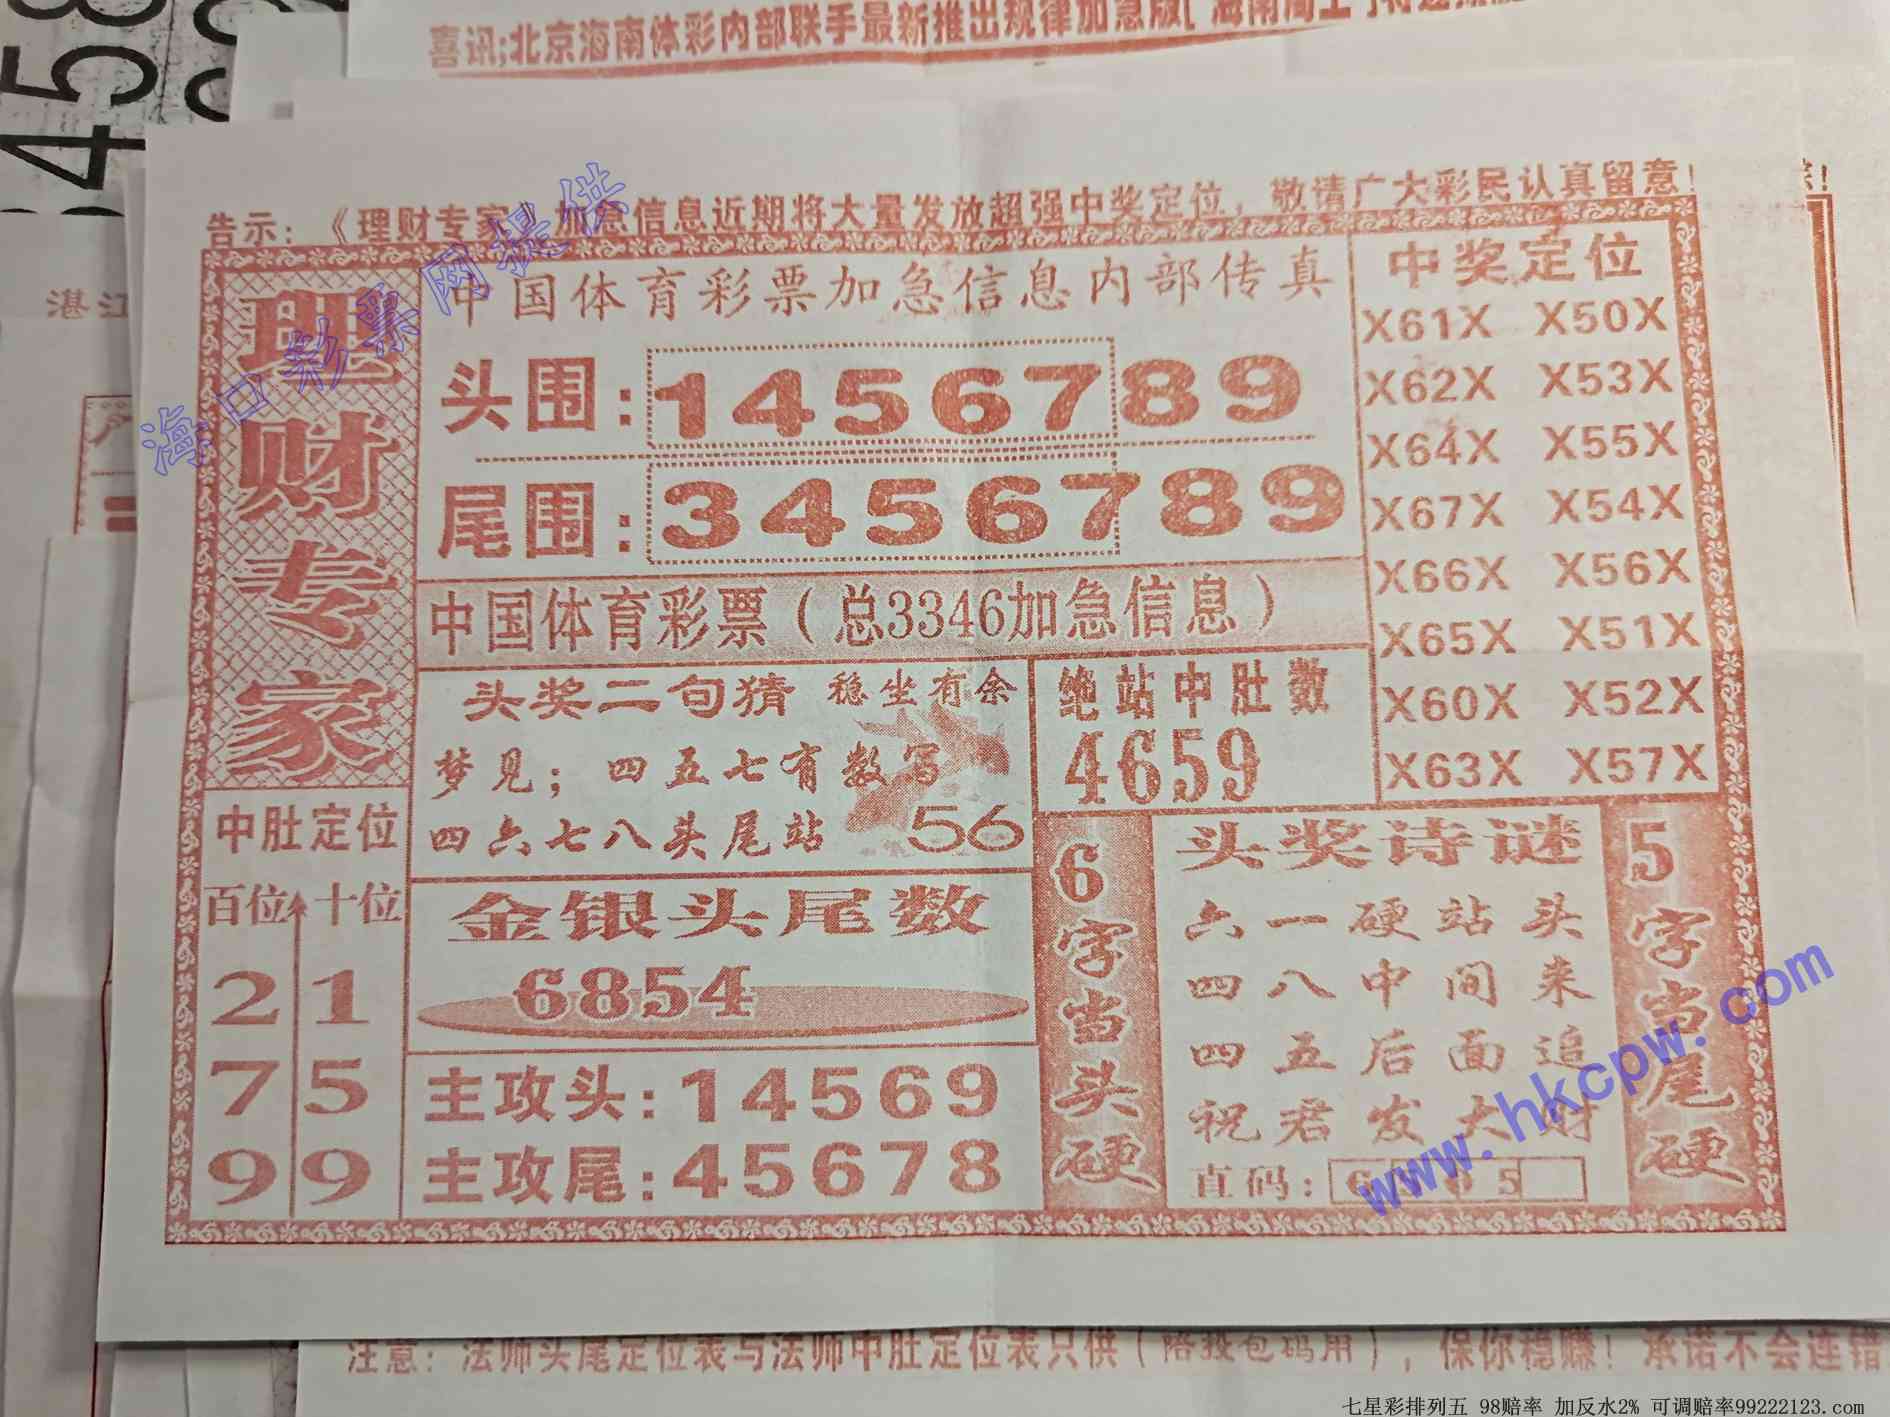 喜讯;北京海南体彩内部联手最新推出规律加急版[
告示：《理财专家》加急信息近期将大量发放超强中奖定位，敬请广大彩民认真留意！
理财专家
中国体育彩票加急信息内部传真
头围：1456789
尾围：3456789
中国体育彩票（总3346加急信息）
中奖定位
X61X X50X
X62X X53X
X64X X55X
X67X X54X
X66X X56X
X65X X51X
X60X X52X
X63X X57X
头奖二句猜 稳坐有余
梦见；四五七有数写
四六七八头尾站 56
绝站中肚数
4659
中肚定位
百位 十位
2 1
7 5
9 9
金银头尾数
6854
主攻头:14569
主攻尾:45678
6字当头硬
头奖诗谜
六一硬站头
四八中间来
四五后面追
祝君发大财
直码:
5字当尾硬
注意：法师头尾定位表与法师中肚定位表只供（陪投包码用），保你稳赚！承诺不会连错
湛江
海口彩票网提供
www.hkcpw.com
七星彩排列五 98赔率 加反水2% 可调赔率99222123.com